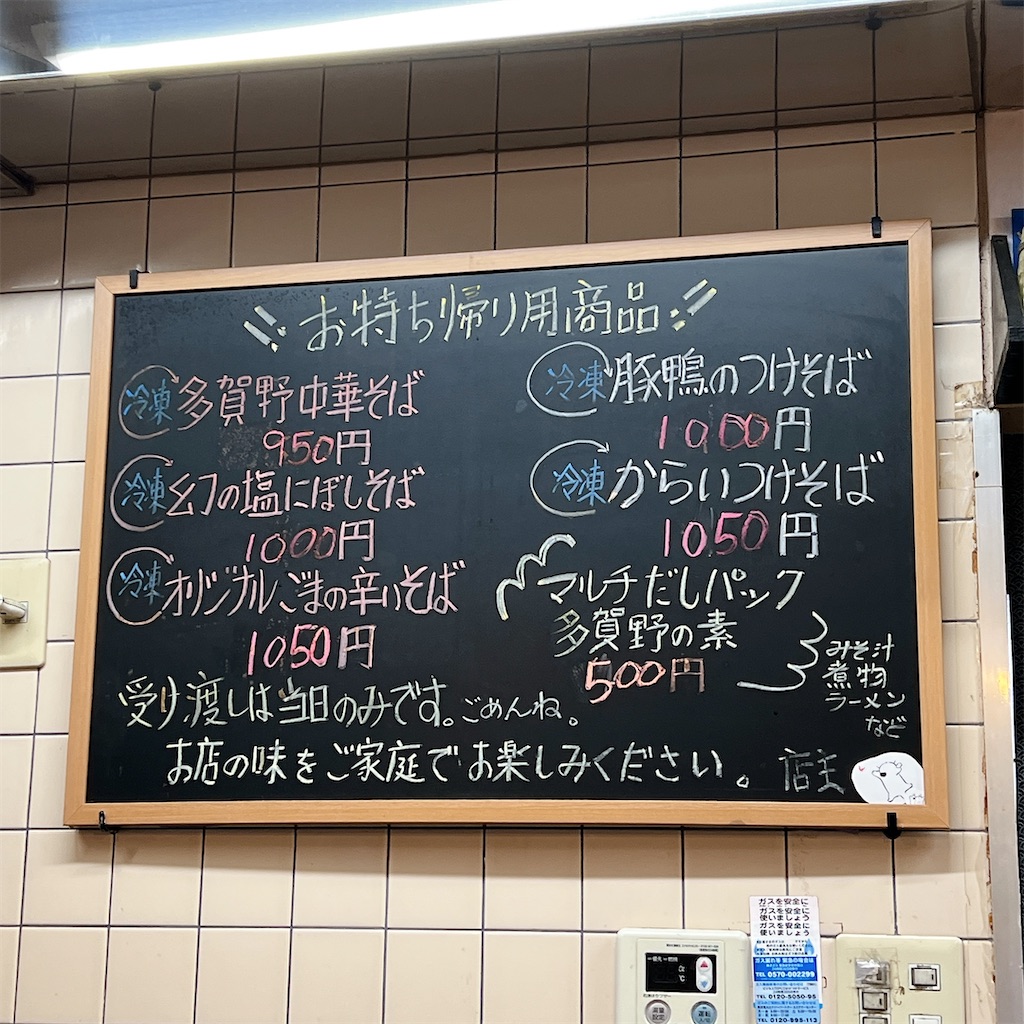 お持ち帰り用商品
冷凍 多賀野中華そば
950円
冷凍 幻の塩にぼしそば
1000円
冷凍 オリジナルごまの辛いそば
1050円
冷凍 豚鴨のつけそば
1000円
冷凍 からいつけそば
1050円
マルチだしパック
多賀野の素
500円
みそ汁
煮物
ラーメン
など
受け渡しは当日のみです。ごめんね。
お店の味をご家庭でお楽しみください。 店主
ガスを安全に
使いましょう
ガスを安全に
使いましょう
TEL 0570-002299
TEL 0120-5050-95
TEL 0120-995-113